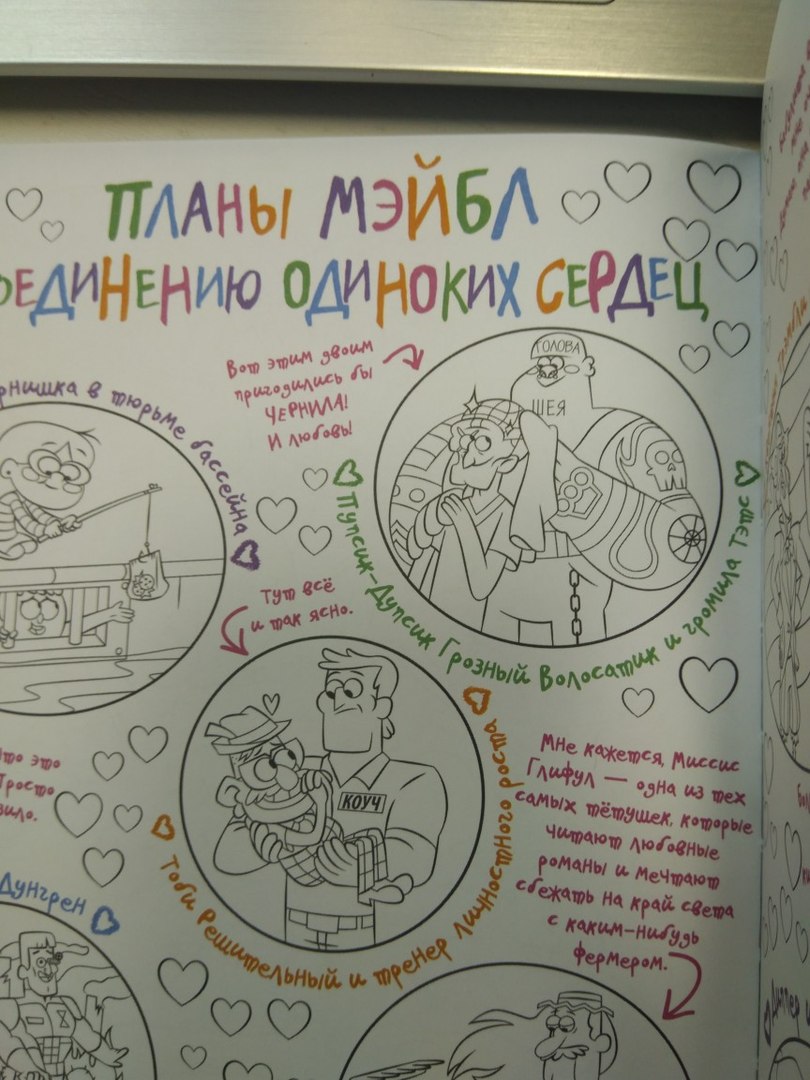 ПЛАНЫ МЭЙБЛ
ЕДИНЕНИЮ ОДИНОКИХ СЕРДЕЦ
в тюрьме бассейна
Вот этим двоим
пригодились бы
ЧЕРНИЛА!
И любовь!
ГОЛОВА
ШЕЯ
Пупсик-Дупсик Грозный Волосатик и громила Тэтс
Тут всё
и так ясно.
КОУЧ
Тоби Решительный и тренер личностного роста
это
Просто
Дунгрен
Мне кажется, Миссис
Глифул — одна из тех
самых тётушек, которые
читают любовные
романы и мечтают
сбежать на край света
с каким-нибудь
фермером.